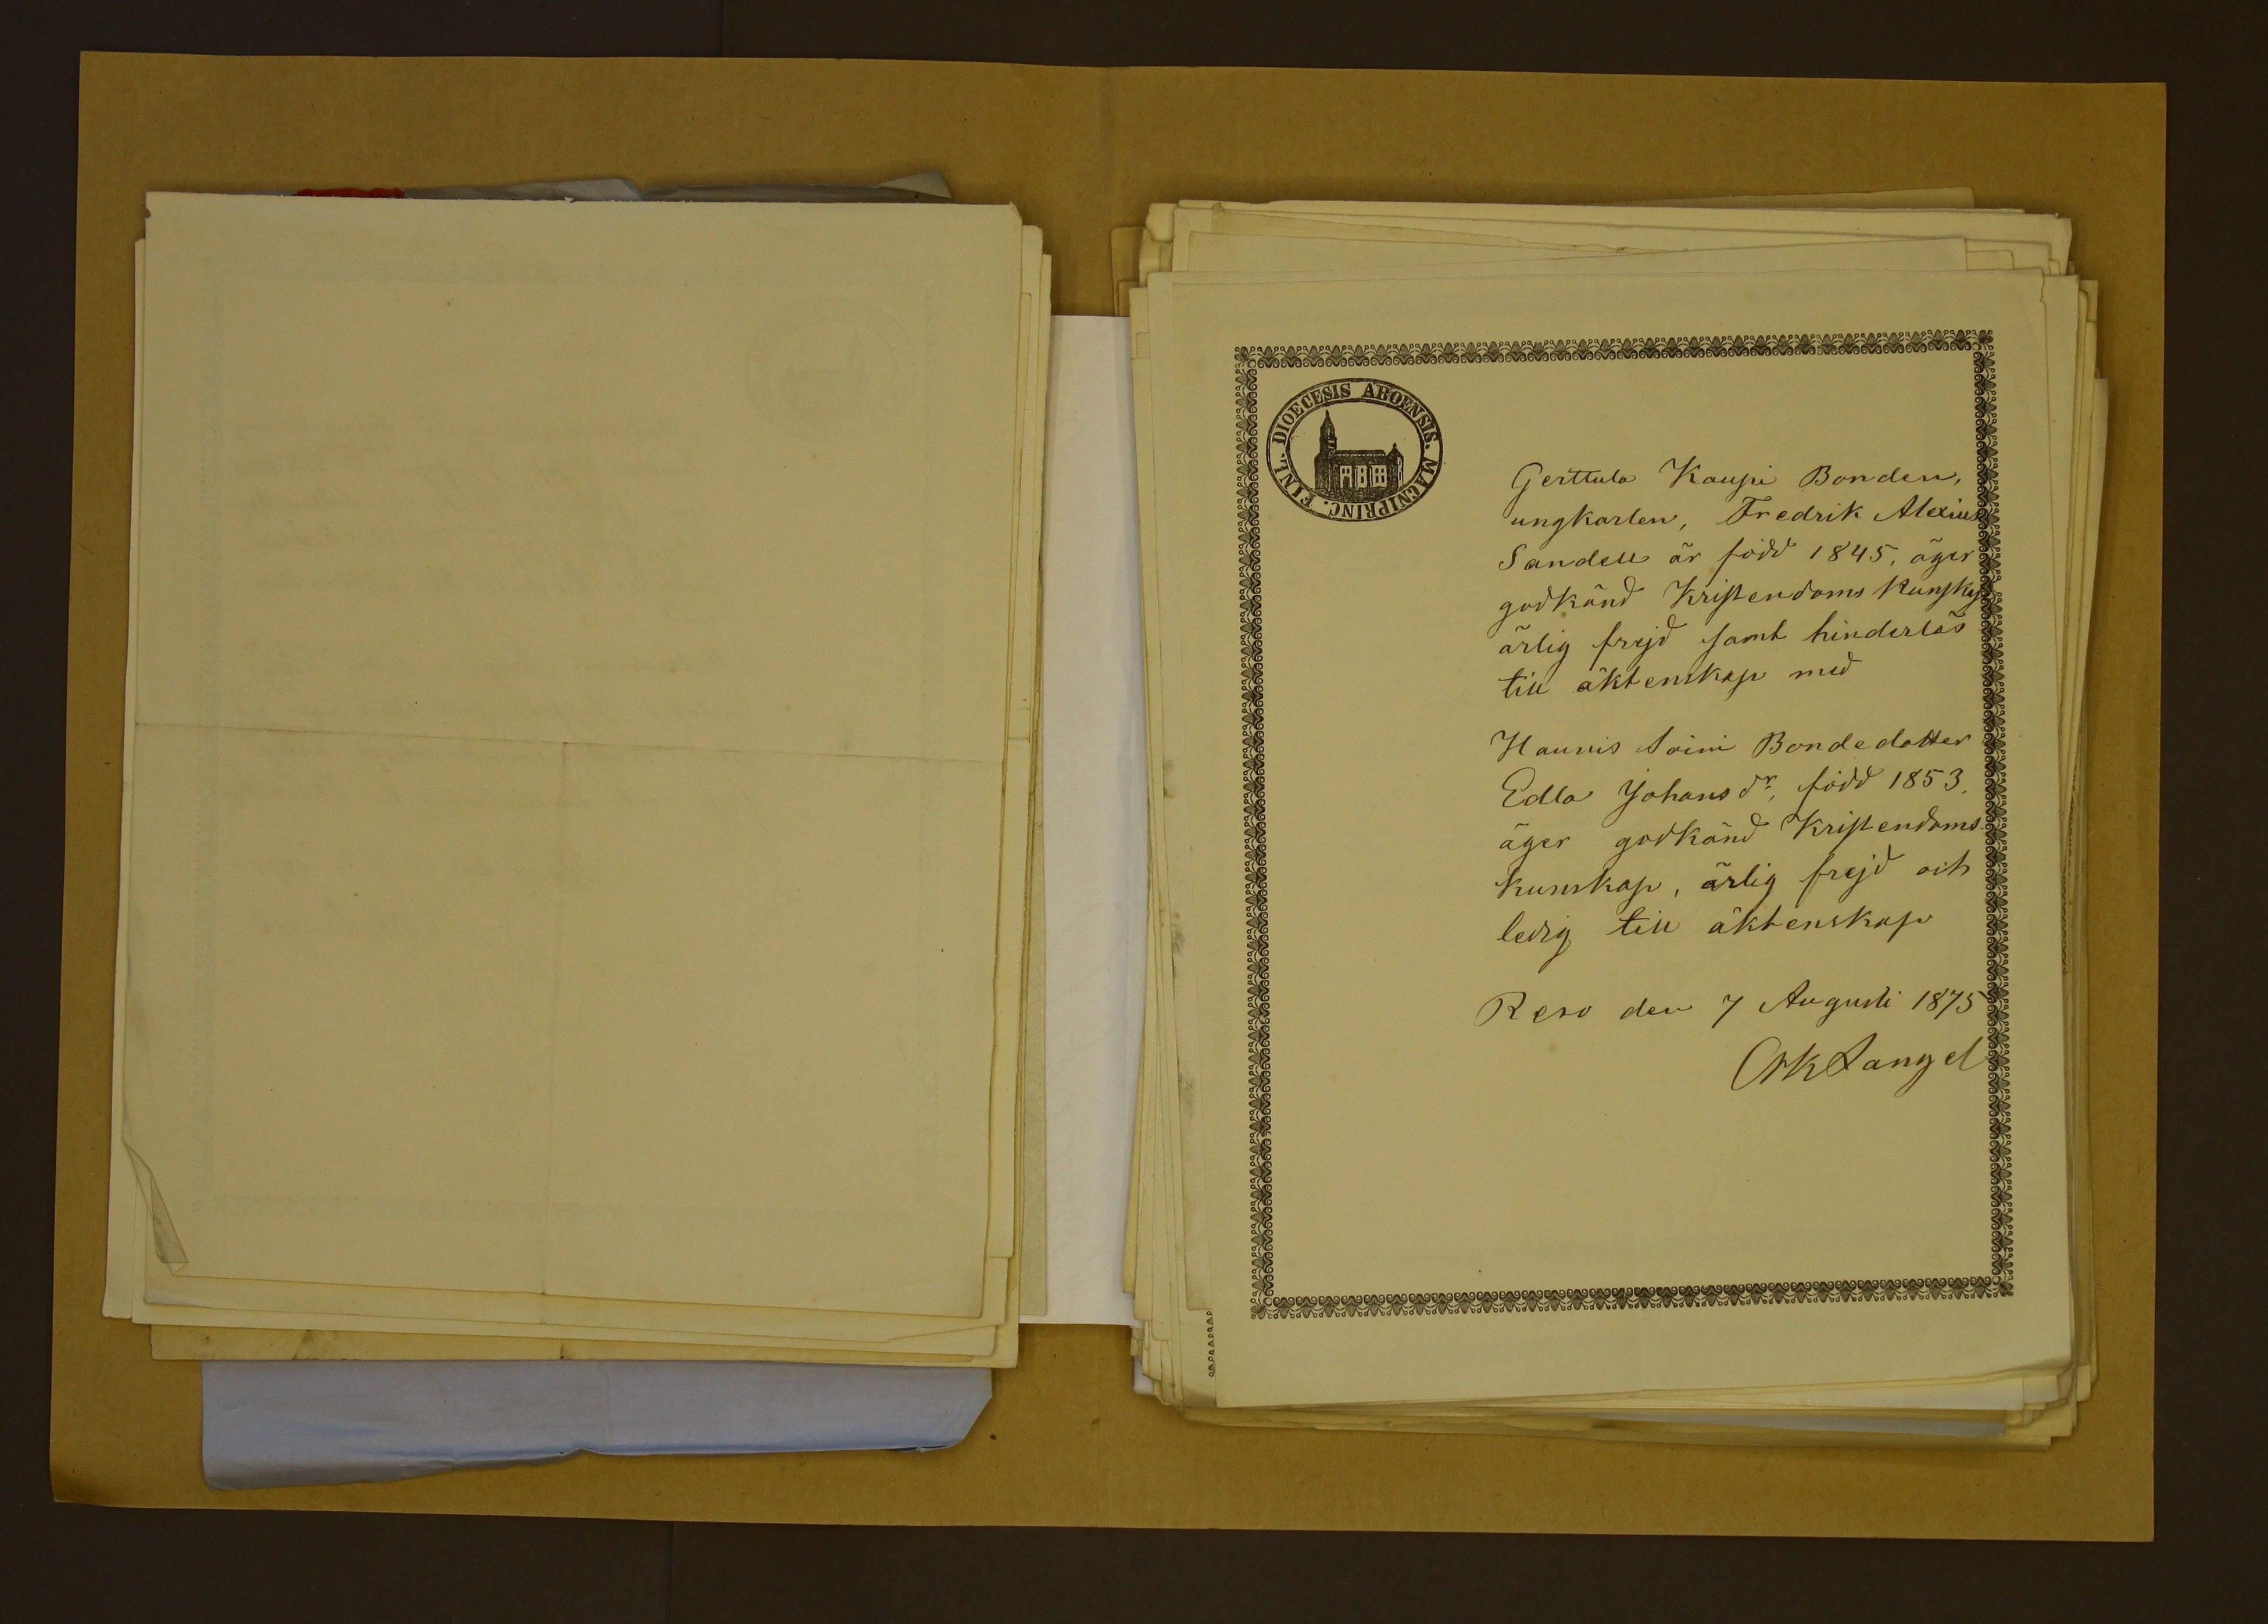 DIOECESIS ABOENSIS. MAGNIPRINC. FINL.
Gerttula Kaupi Bonden,
ungkarlen, Fredrik Alexius
Sandell är född 1845, äger
godkänd Kristendoms Kunskap
ärlig frejd samt hinderlös
till äktenskap med
Haunis Soini Bondedotter
Edla Johans dr, född 1853,
äger godkänd Kristendoms
Kunskap, ärlig frejd och
ledig till äktenskap
Reso den 7 Augusti 1875